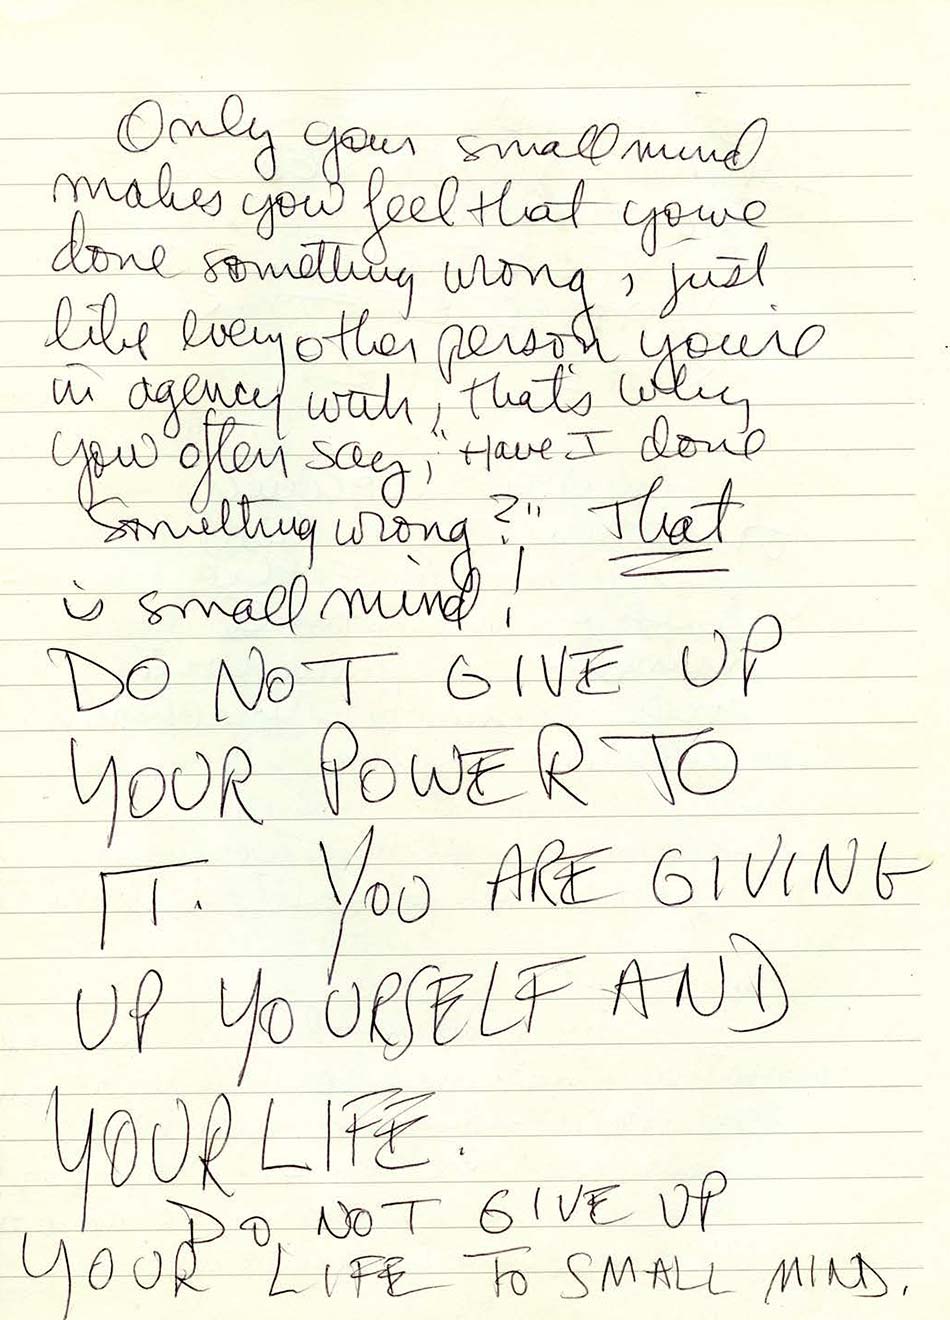 Only your small mind
makes you feel that you've
done something wrong, just
like every other person you're
in agency with, that's why
you often say, "Have I done
something wrong?" That
is small mind!
DO NOT GIVE UP
YOUR POWER TO
IT. YOU ARE GIVING
UP YOURSELF AND
YOUR LIFE.
DO NOT GIVE UP
YOUR LIFE TO SMALL MIND.